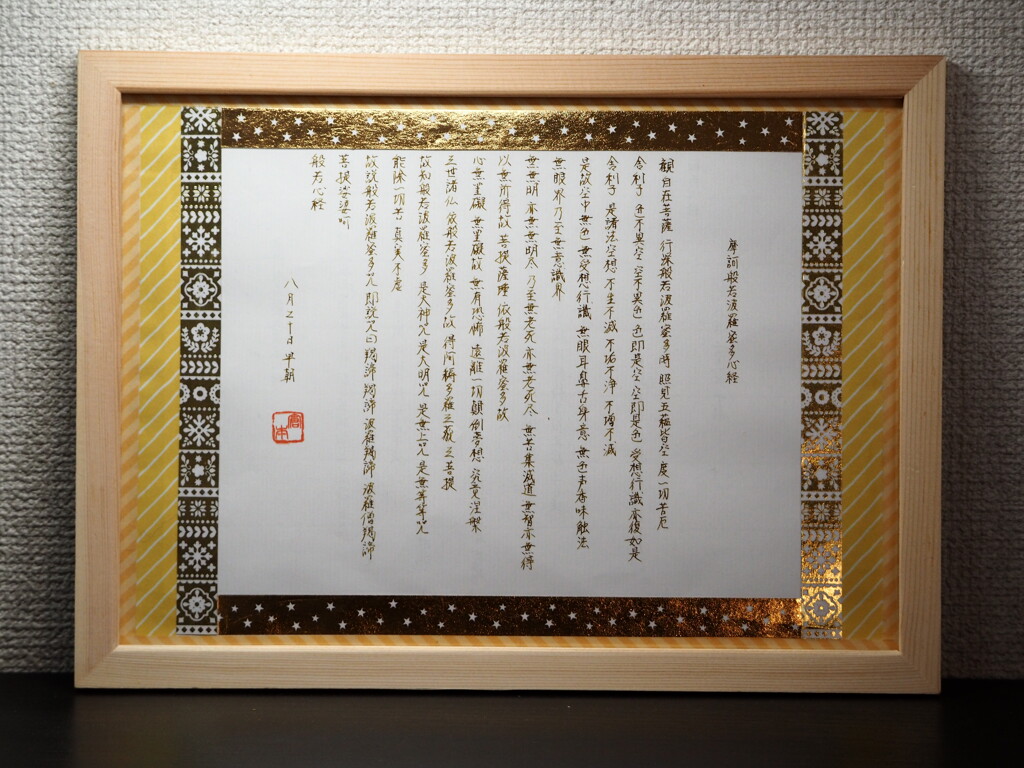 摩訶般若波羅蜜多心経
観自在菩薩 行深般若波羅蜜多時 照見五蘊皆空 度一切苦厄
舎利子 色不異空 空不異色 色即是空 空即是色 受想行識亦復如是
舎利子 是諸法空想 不生不滅 不垢不浄 不増不減
是故空中 無色 無受想行識 無眼耳鼻舌身意 無色声香味触法
無眼界 乃至無意識界
無無明 亦無無明尽 乃至無老死 亦無老死尽 無苦集滅道 無智亦無得
以無所得故 菩提薩埵 依般若波羅蜜多故
心無罣礙 無罣礙故 無有恐怖 遠離一切顛倒夢想 究竟涅槃
三世諸仏 依般若波羅蜜多故 得阿耨多羅三藐三菩提
故知般若波羅蜜多 是大神咒 是大明咒 是無上咒 是無等等咒
能除一切苦 真実不虚
故説般若波羅蜜多咒 即説咒曰 羯諦 羯諦 波羅羯諦 波羅僧羯諦
菩提娑婆訶
般若心経
八月二十日 早朝